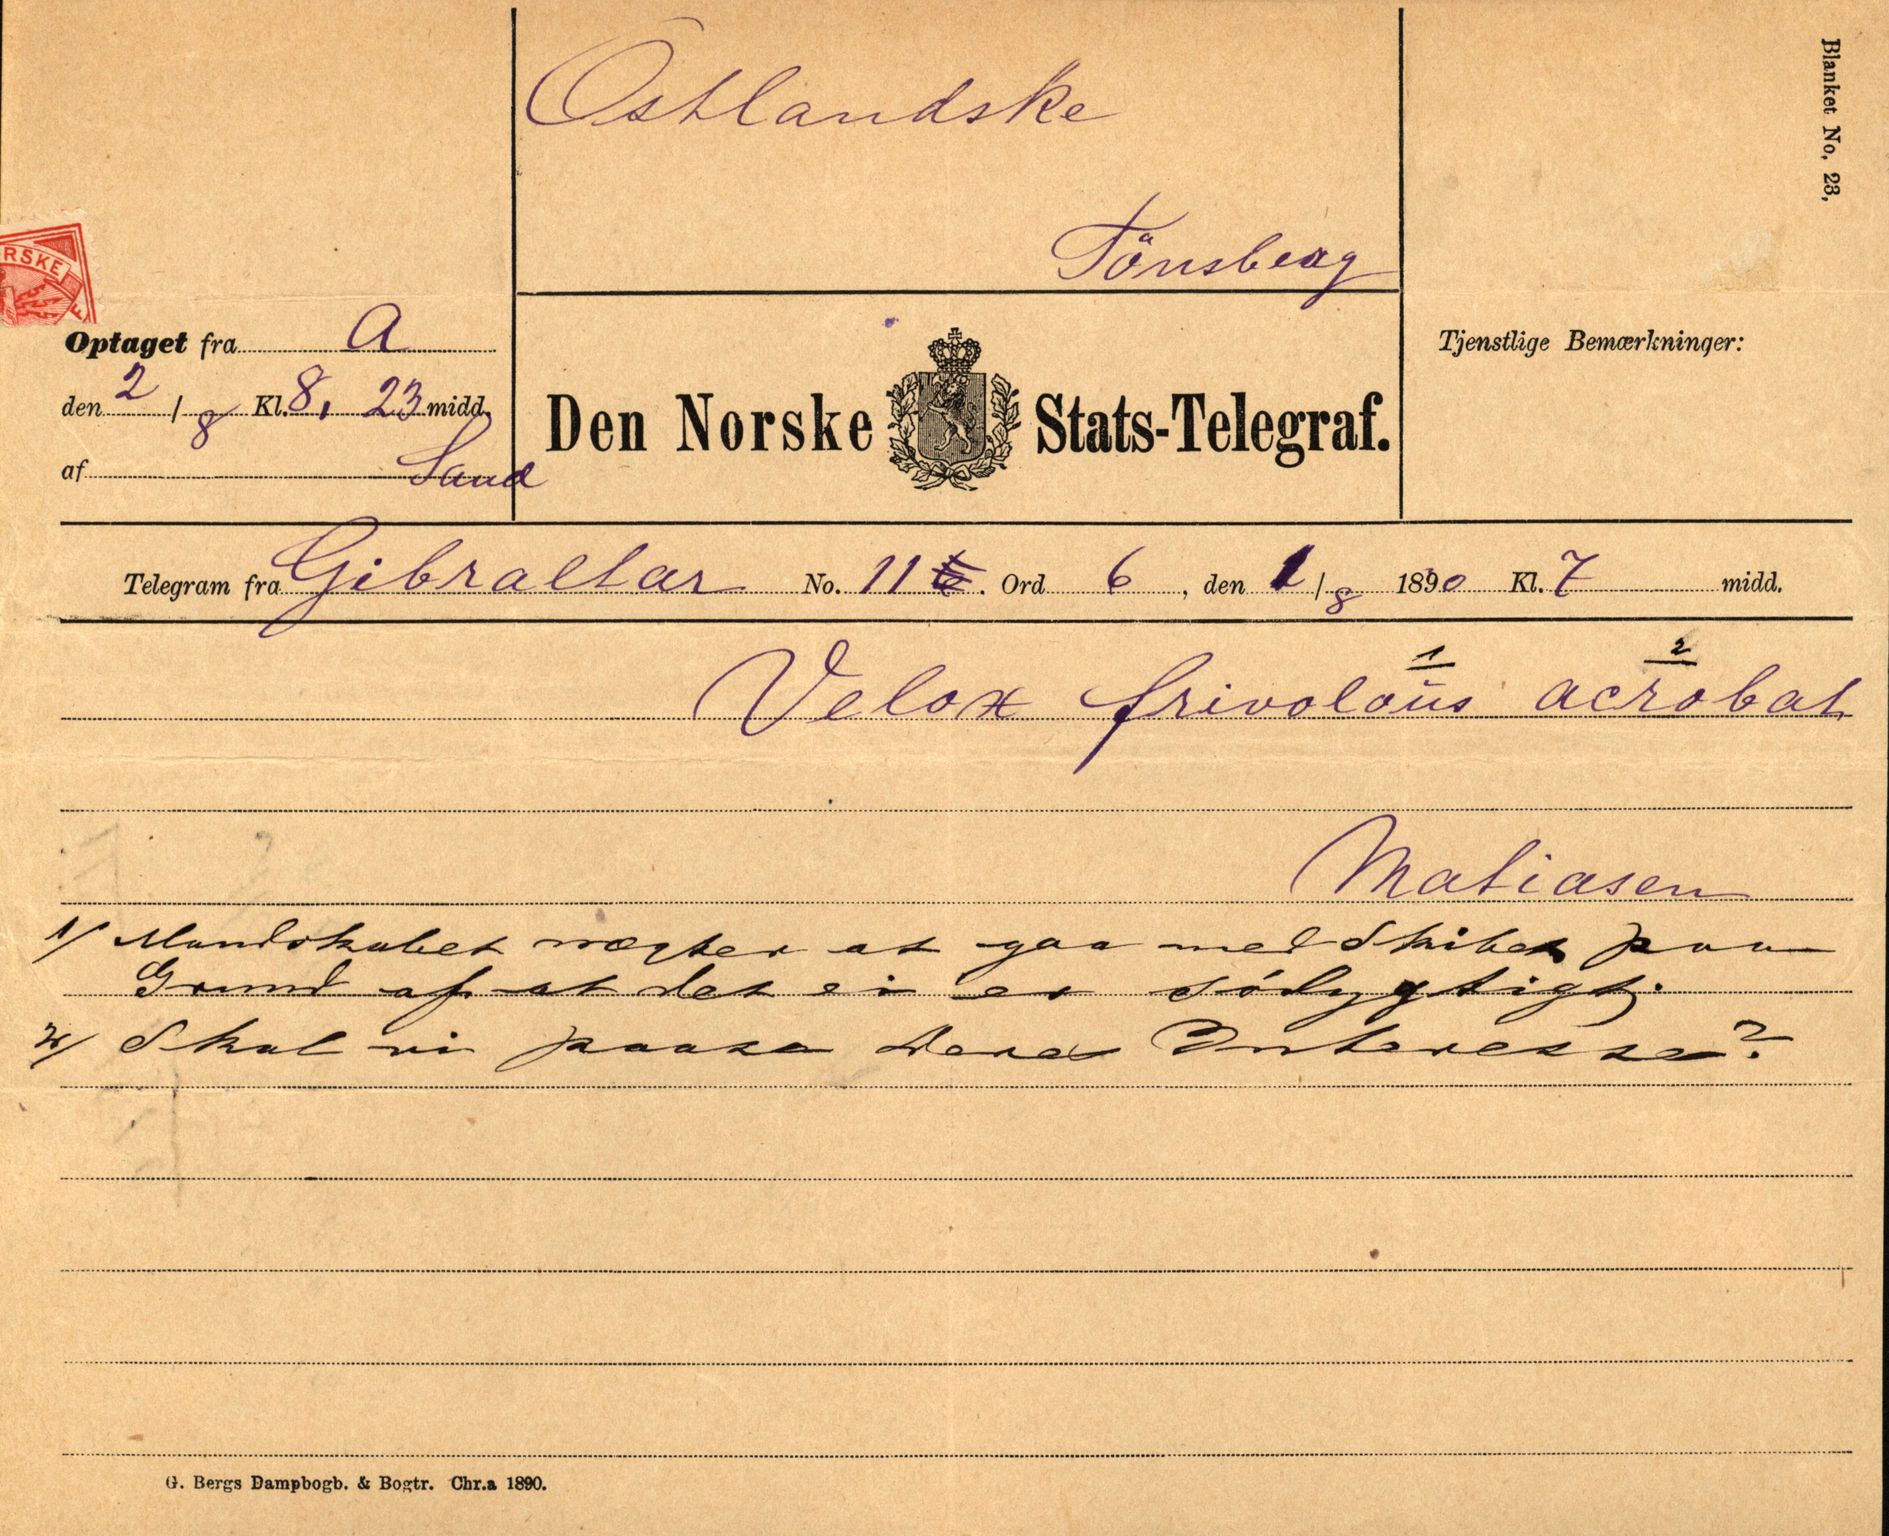 Blanket No, 23,
Ostlandske
Tönsberg
RSKE
Optaget fra A
den 2/8 Kl. 8, 23 midd.
af Sand
Den Norske Stats-Telegraf.
Tjenstlige Bemærkninger:
Telegram fra Gibraltar No. 11 . Ord 6, den 1/8 1890 Kl. 7 midd.
1 2
Velox frivolous acrobat
Matiasen
1/ Mandskabet nægter at gaa med Skibet paa
Grund af at det ei er södygtigt.
2/ Skal vi paase Deres Interesse?
G. Bergs Dampbogb. & Bogtr. Chr.a 1890.